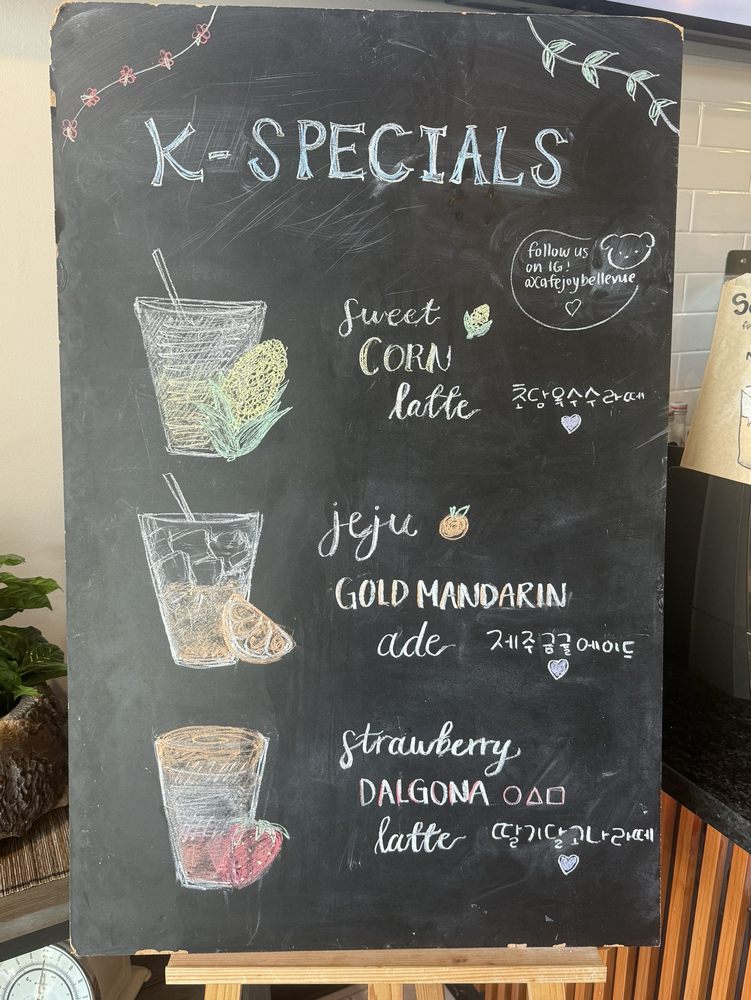 K-SPECIALS
follow us
on IG!
@cafejoybellevue
sweet
CORN
latte 초당옥수수라떼
jeju
GOLD MANDARIN
ade 제주금귤에이드
strawberry
DALGONA ○△□
latte 딸기달고나라떼